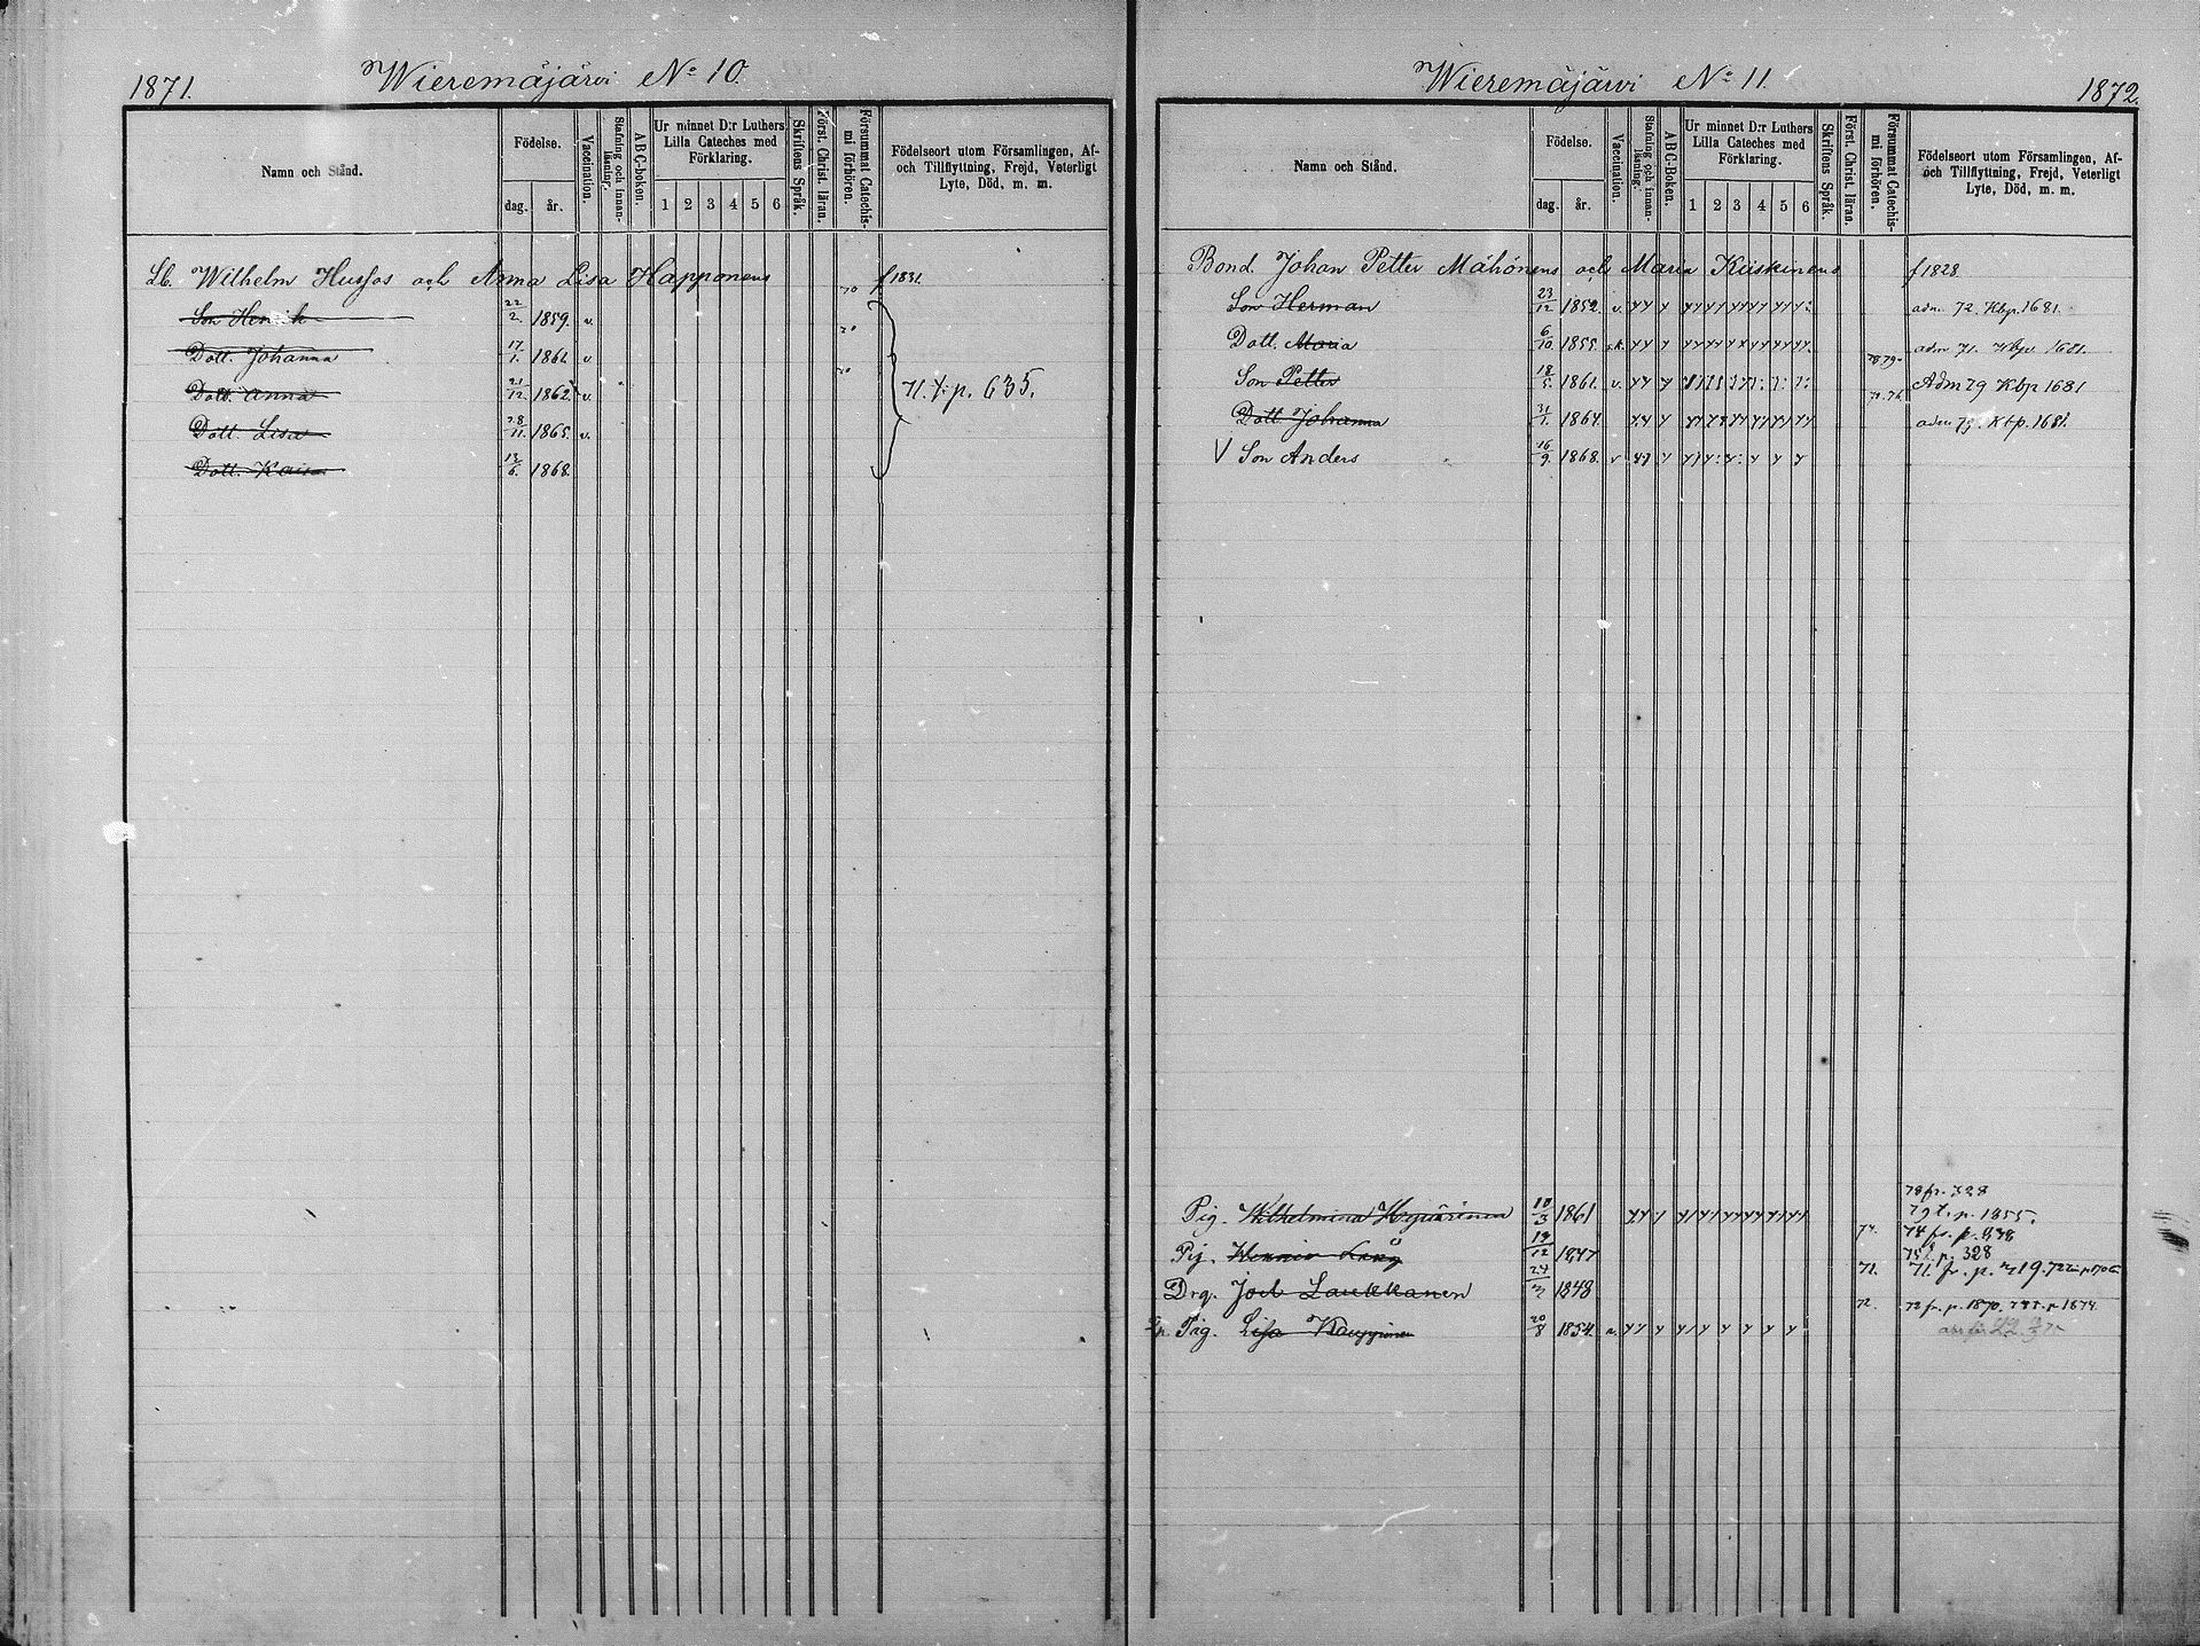 1871.
Wieremäjärvi No 10.
Namn och Stånd.
Födelse.
dag.
år.
Vaccination.
Stafning och innanläsning.
A B C-boken.
Ur minnet D:r Luthers Lilla Cateches med Förklaring.
1 2 3 4 5 6
Skriftens Språk.
Först. Christ. läran.
Försummat Catechismi förhören.
Födelseort utom Församlingen, Af- och Tillflyttning, Frejd, Veterligt Lyte, Död, m. m.
Lb. Wilhelm Hussos och Anna Lisa Happonens f 1831.
Son Henrik 22/2. 1859. v. 70
Dott. Johanna 17/1. 1861. v 70
Dott. Anna 21/12. 1862. v. 70
71. t. p. 635.
Dott. Lisa 28/11. 1865. v.
Dott. Kaisa 13/6. 1868.
Wieremäjärvi No 11.
1872.
Namn och Stånd.
Födelse.
dag.
år.
Vaccination.
Stafning och innanläsning.
A B C-Boken.
Ur minnet D:r Luthers Lilla Cateches med Förklaring.
1 2 3 4 5 6
Skriftens Språk.
Först. Christ. läran.
Försummat Catechismi förhören.
Födelseort utom Församlingen, Af- och Tillflyttning, Frejd, Veterligt Lyte, Död, m. m.
Bond. Johan Petter Mähönens och Maria Kiiskinens f 1828
Son Herman 23/12 1852. v. adm. 72. Kbp. 1681.
Dott. Maria 6/10. 1855. adm 71. Kbp 1681.
Son Petter 18/5. 1861. v. 78 79 Adm 79 Kbp 1681
Dott. Johanna 31/1. 1864. 74. 76. adm 79. Kbp. 1681.
V Son Anders 16/9. 1868. v
78 fr. 328
Pig. Wilhelmina Hyvärinen 18/3 1861 79 t. p. 1855.
74. 74 fr. p.
Pig. 12 1847 75 t. p. 328
Drg. Joel Laukkanen 24/3 1848 71. 71. fr. p.
72. 72 fr. p. 1870. p 1874.
Pig. Lisa Kauppinen 20/8 1854. v.